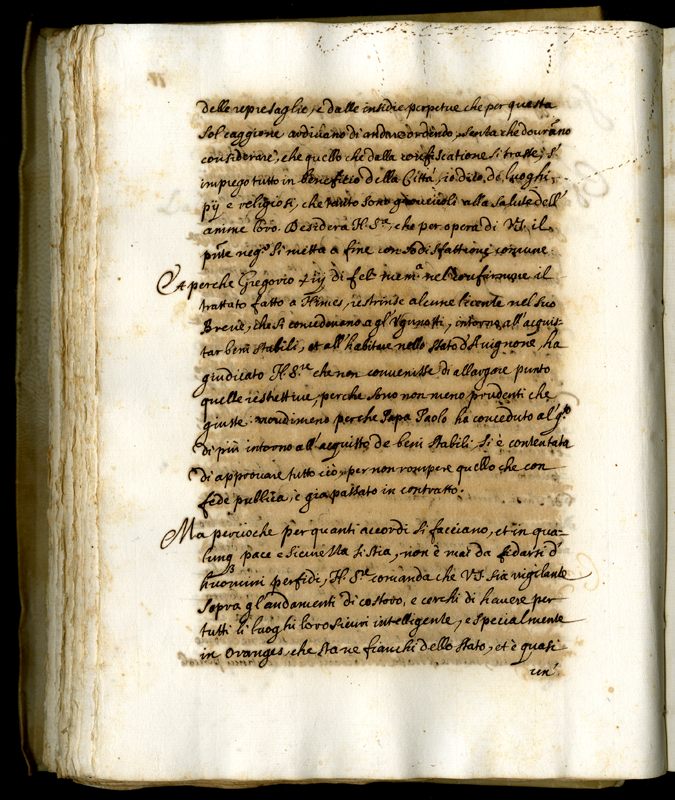 delle represaglie, e dalle insidie perpetue che per questa
sol caggione ardivano di andar ordendo, senza che dovrāno
considerare, che quello che dalla confiscatione si trasse, s'
impiegò tutto in beneficio della Città, io dico, de luoghi
pij e religiosi, che tanto sono giovevoli alla salute dell'
anime loro. Desidera N. S.re, che per opera di V.S. il
pn̄te neg.º si metta a fine con sodisfattione comune.
Et perche Gregorio xiij di fel. mem.a nel confirmare il
trattato fatto a Nimes, restrinse alcune licenze nel suo
Breve, che si concedevano a gl'Vgunotti, intorno all'acquis-
tar beni stabili, et all'habitare nello stato d'Avignone, ha
giudicato N. S.re che non convenisse di allargare punto
quelle restrettive, perche sono non meno prudenti che
giuste: nondimeno perche Papa Paolo ha conceduto al
di più intorno all'acquisto de beni stabili, si è contentata
di approvare tutto ciò, per non rompere quello che con
fede publica, è gia passato in contratto.
Ma percioche per quanti accordi si facciano, et in qua-
lunq3 pace e sicurezza si stia, non è mai da fidarsi d'
huomini perfidi, N. S.re comanda che V.S. sia vigilante
sopra gl'andamenti di costoro, e cerchi di havere per
tutti li luoghi loro sicuri intelligenze, e specialmente
in Oranges, che sta ne fianchi dello Stato, et è quasi
un'